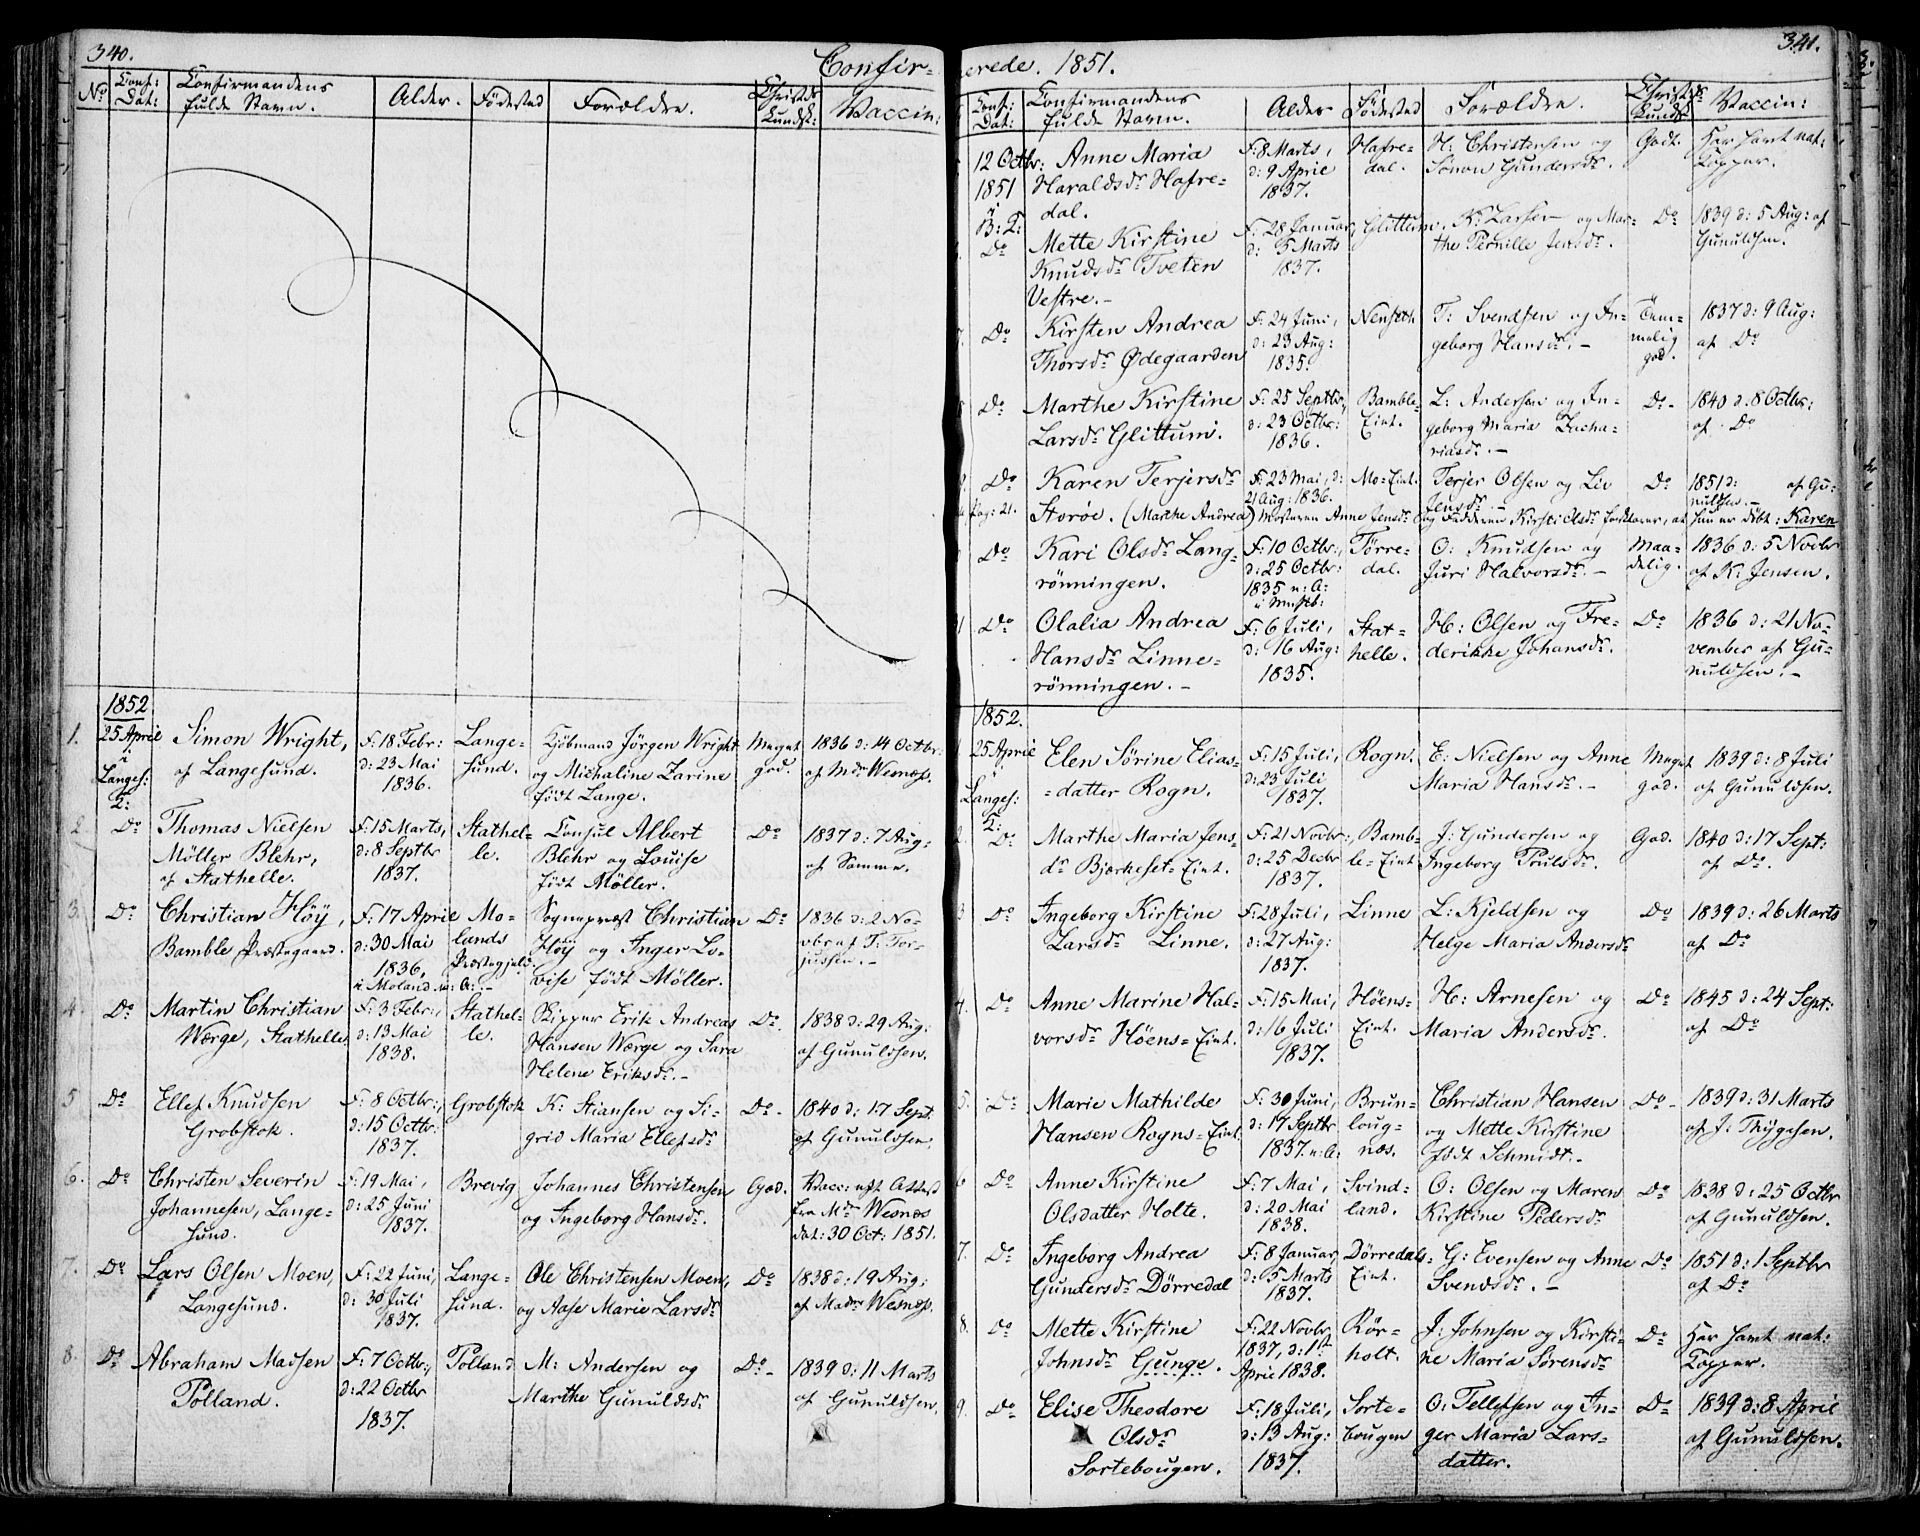 340.
Confir=
No
Conf:
Dat:
Confirmandens
fulde Navn.
Alder.
Födested
Forældre.
Christds
Kundsk:
Vaccin:
1852
1.
25 April
i
Langes:
T:
Simon Wright,
af Langesund.
F: 18 Febr:
d: 23 Mai
1836.
Lange-
sund.
Kjöbmand Jörgen Wright
og Michaline Zarine
født Lange.
Meget
god.
1836 d: 14 Octbr:
af Md: Wesnæs.
2.
Do
Thomas Nielsen
Möller Blehr,
af Stathelle.
F: 15 Marts,
d: 8 Septbr
1837.
Stathel-
le.
Consul Albert
Blehr og Louise
født Möller.
Do
1837 d: 7 Aug:
af Samme.
3.
Do
Christian Höy,
Bamble Præstegaard.
F: 17 April
d: 30 Mai
1836,
i Moland. n: A: -
Mo-
lands
Præstegjeld.
Sognepræst Christian
Höy og Inger Lo-
vise født Möller.
Do
1836 d: 2 No-
vbr af T: Tor-
jussen. -
4.
Do
Martin Christian
Wærge, Stathelle.
F: 3 Febr:,
d: 13 Mai
1838.
Stathel-
le.
Skipper Erik Andreas
Hansen Wærge og Sara
Helene Eriksdr. -
Do.
1838 d: 29 Aug:
af Gunuldsen.
5
Do
Ellef Knudsen
Grobstok.
F: 8 Octbr:,
d: 15 Octbr:
1837.
Grobstok
K: Stiansen og Si-
grid Maria Ellefsdr
Do -
1840 d: 17 Sept.
af Gunuldsen.
6.
Do
Christen Severin
Johannesen, Lange-
sund.
F: 19 Mai,
d: 25 Juni
1837.
Brevig
Johannes Christensen
og Ingeborg Hansdr.
God.
Vacc: eft Attest
fra Mdr Wesnæs
dat: 30 Oct: 1851.
7.
Do
Lars Olsen Moen,
Langesund.
F: 22 Juni,
d: 30 Juli
1837.
Lange-
sund.
Ole Christensen Moen,
og Aase Marie Larsdr
Do
1838 d: 19 Aug:
af Madr Wesnæs.
8.
Do
Abraham Madsen
Polland.
F: 7 Octbr:,
d: 22 Octbr
1837.
Polland
M: Andersen og
Marthe Gunuldsdr
Do -
1839 d: 11 Marts
af Gunuldsen.
341.
erede. 1851.
Conf:
Dat:
Confirmandens
fulde Navn.
Alder
Födested
Forældre.
Christds
Kundsk
Vaccin:
12 Octbr:
1851
i
B: T:
Anne Maria
Haraldsdr Hafre-
dal.
F: 8 Marts,
d: 9 April
1837.
Hafre-
dal.
H: Christensen og
Simon Gundersdr.
Godt.
Har havt nat:
Kopper.
Do
Mette Kirstine
Knudsdr Tveten
Vestre. -
F: 28 Januar,
d: 5 Marts
1837.
Glittum.
K: Larsen og Mar-
the Pernille Jensdr.
Do
1839 d: 5 Aug: af
Gunuldsen.
7.
Do
Kirsten Andrea
Thorsdr Ødegaarden
F: 24 Juni,
d: 23 Aug:
1835.
Nenseth
T: Svendsen og In-
geborg Hansdr. -
Tem-
melig
god.
1837 d: 9 Aug:
af Do
8
Do
Marthe Kirstine
Larsdr Glittum.
F: 25 Septbr,
d: 23 Octbr:
1836.
Bamble-
Eint.
L: Andersen og In-
geborg Maria Zacha-
riasdr. -
Do -
1840 d: 8 Octbr:
af Do
9.
Do
Pag: 21.
Karen Terjersdr
Storøe. (Marthe Andrea) Mosteren Anne Jensdr og Fadderen Kirsti Olsdr forklarer, at hun er döbt: Karen
F: 23 Mai, d:
21 Aug: 1836.
Mo-Eint.
Terjer Olsen og Liv
Jensdr. -
Do
1851 d: af Gu-
nuldsen. -
Do
Kari Olsdr Lang-
rönningen.
F: 10 Octbr:,
d: 25 Octbr:
1835 n: A:
Tørre-
dal.
O: Knudsen og
Juri Halvorsdr. -
Maa-
delig.
1836 d: 5 Novbr
af K: Jensen.
Do
Olalia Andrea
Hansdr Linne-
rönningen. -
F: 6 Juli,
d: 16 Aug:
1835.
Stat-
helle.
H: Olsen og Fre-
derikke Johansdr.
Do
1836 d: 21 No-
vember af Gu-
nuldsen. -
1852.
1
25 April
i
Langes:
T:
Elen Sörine Elias-
=datter Rogn.
F: 15 Juli,
d: 23 Juli
1837.
Rogn.
E: Nielsen og Anne
Maria Hansdr. -
Meget
god.
1839 d: 8 Juli
af Gunuldsen.
2.
Do
Marthe Maria Jens-
dr Bjerkeset-Eint.
F: 21 Novbr:,
d: 25 Decbr
1837.
Bamb-
le-Eint
J: Gundersen og
Ingeborg Poulsdr.
God.
1840 d: 17 Sept:
af Do.
3
Do
Ingeborg Kirstine
Larsdr Linne.
F: 28 Juli,
d: 27 Aug:
1837.
Linne
L: Kjeldsen og
Helge Maria Andersdr
Do
1839 d: 26 Marts
af Do
4.
Do
Anne Marine Hal-
vorsdr Höens-Eint.
F: 15 Mai,
d: 16 Juli
1837.
Höens-
Eint.
H: Arnesen og
Maria Andersdr.
Do
1845 d: 24 Sept:
af Do
5.
Do
Marie Mathilde
Hansen Rogns-Eint
F: 30 Juni,
d: 17 Septbr
1837. n: A:
Brun-
loug-
næs.
Christian Hansen
og Mette Kirstine
født Schmidt. -
Do -
1839 d: 31 Marts
af J: Thygesen.
6
Do
Anne Kirstine
Olsdatter Holte.
F: 7 Mai,
d: 20 Mai
1838.
Svind-
land.
O: Olsen og Maren
Kirstine Pedersdr
Do
1838 d: 25 Octbr
af Gunuldsen.
7.
Do
Ingeborg Andrea
Gundersdr Dörredal
F: 8 Januar,
d: 5 Marts
1837.
Dörredals-
Eint.
G: Evensen og Anne
Svendsdr. -
Do
1851 d: 1 Septbr
af Do
8.
Do
Mette Kirstine
Johnsdr Gunge.
F: 22 Novbr
1837, d: 1ste
April 1838.
Rör-
holt.
J: Johnsen og Kirsti-
ne Maria Sörensdr
Do
Har havt nat:
Kopper.
9.
Do
Elise Theodore
Olsdr
Sortebougen.
F: 18 Juli,
d: 13 Aug:
1837.
Sorte-
bougen
O: Tellefsen og In-
ger Maria Lars-
datter.
Do
1839 d: 8 April
af Gunuldsen.